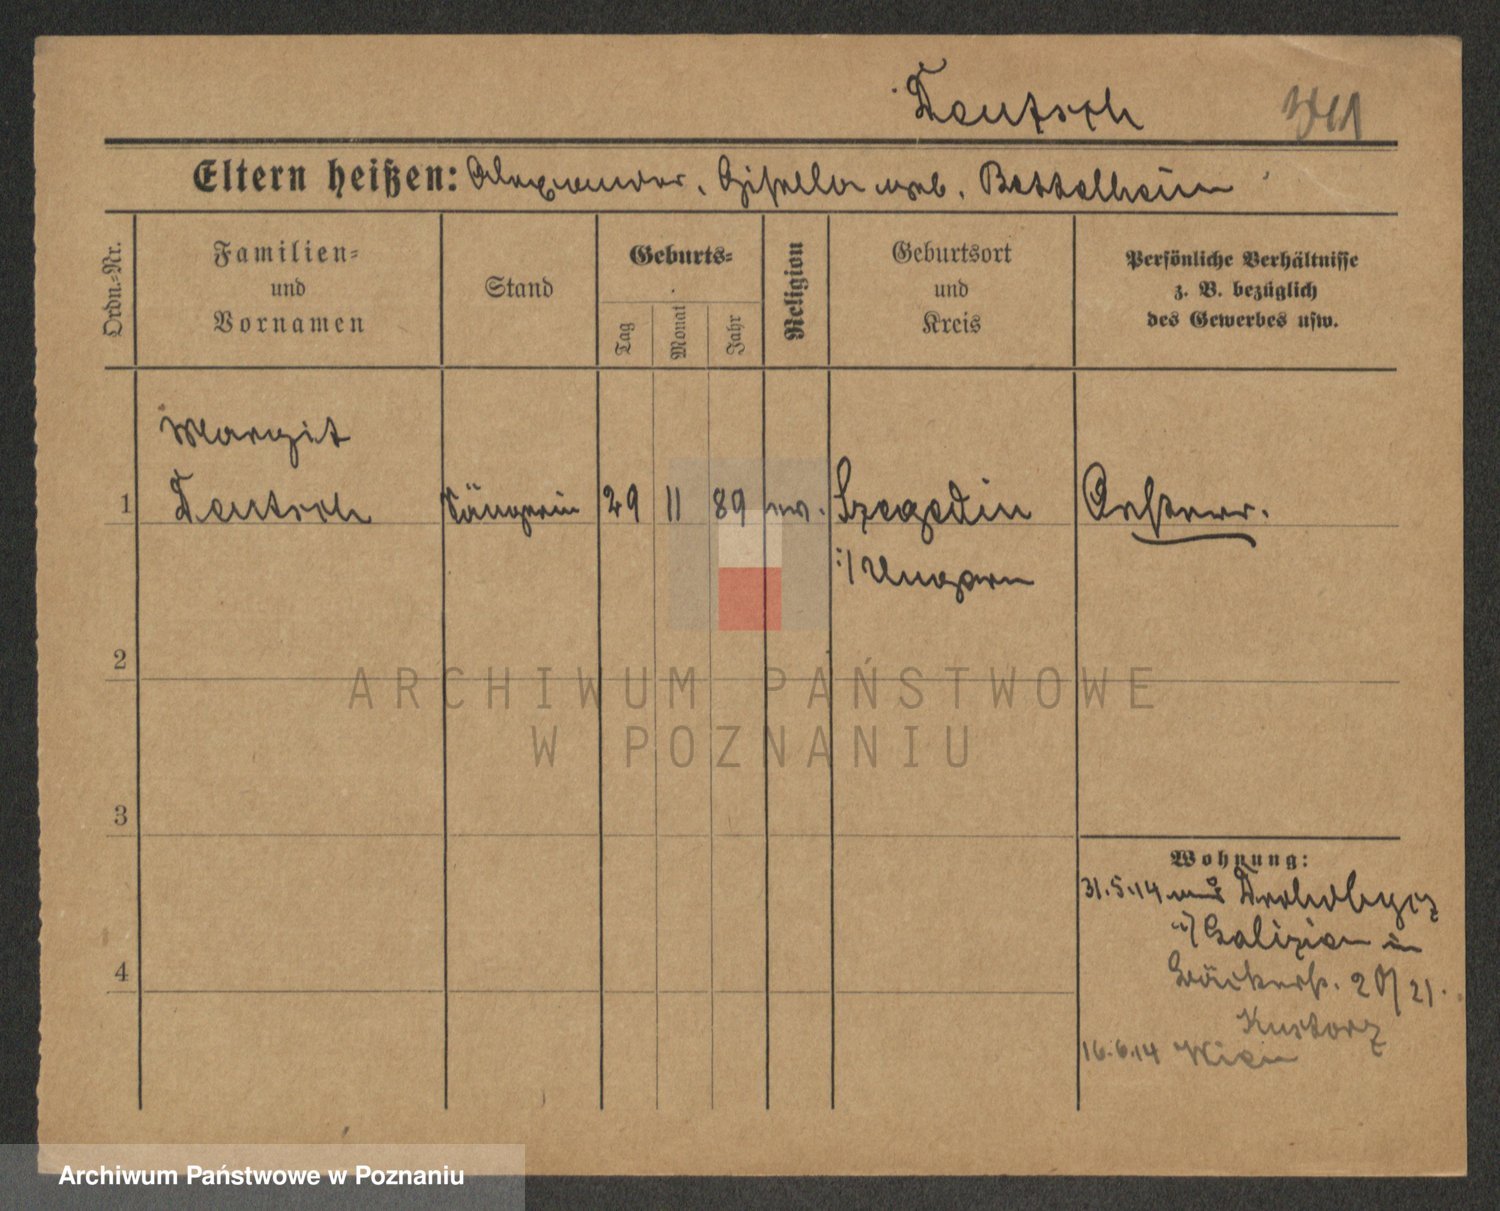 Deutsch
Eltern heißen: Alexander, Gisella geb. Bettelheim
Ordn.=Nr.
Familien=
und
Vornamen
Stand
Geburts=
Tag
Monat
Jahr
Religion
Geburtsort
und
Kreis
Persönliche Verhältnisse
z. B. bezüglich
des Gewerbes usw.
Margit
1 Deutsch Sängerin 29 11 89 Szegedin Österr.
i/ Ungarn
2
3
4
Wohnung:
31.5.14 aus Drohobycz
i/ Galizien in
Bäckerst. 20/21.
Kustorz
16.6.14 Wien
ARCHIWUM PAŃSTWOWE
W POZNANIU
Archiwum Państwowe w Poznaniu